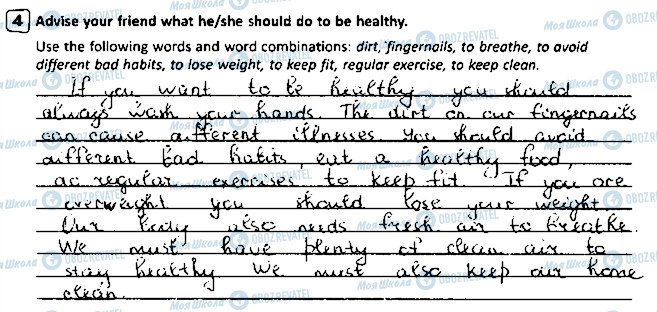 4 Advise your friend what he/she should do to be healthy.
Use the following words and word combinations: dirt, fingernails, to breathe, to avoid
different bad habits, to lose weight, to keep fit, regular exercise, to keep clean.
If you want to be healthy you should
always wash your hands. The dirt on our fingernails
can cause different illnesses. You should avoid
different bad habits, eat a healthy food,
do regular exercises to keep fit. If you are
overweight you should lose your weight.
Our body also needs fresh air to breathe.
We must have plenty of clean air to
stay healthy. We must also keep our home
clean.